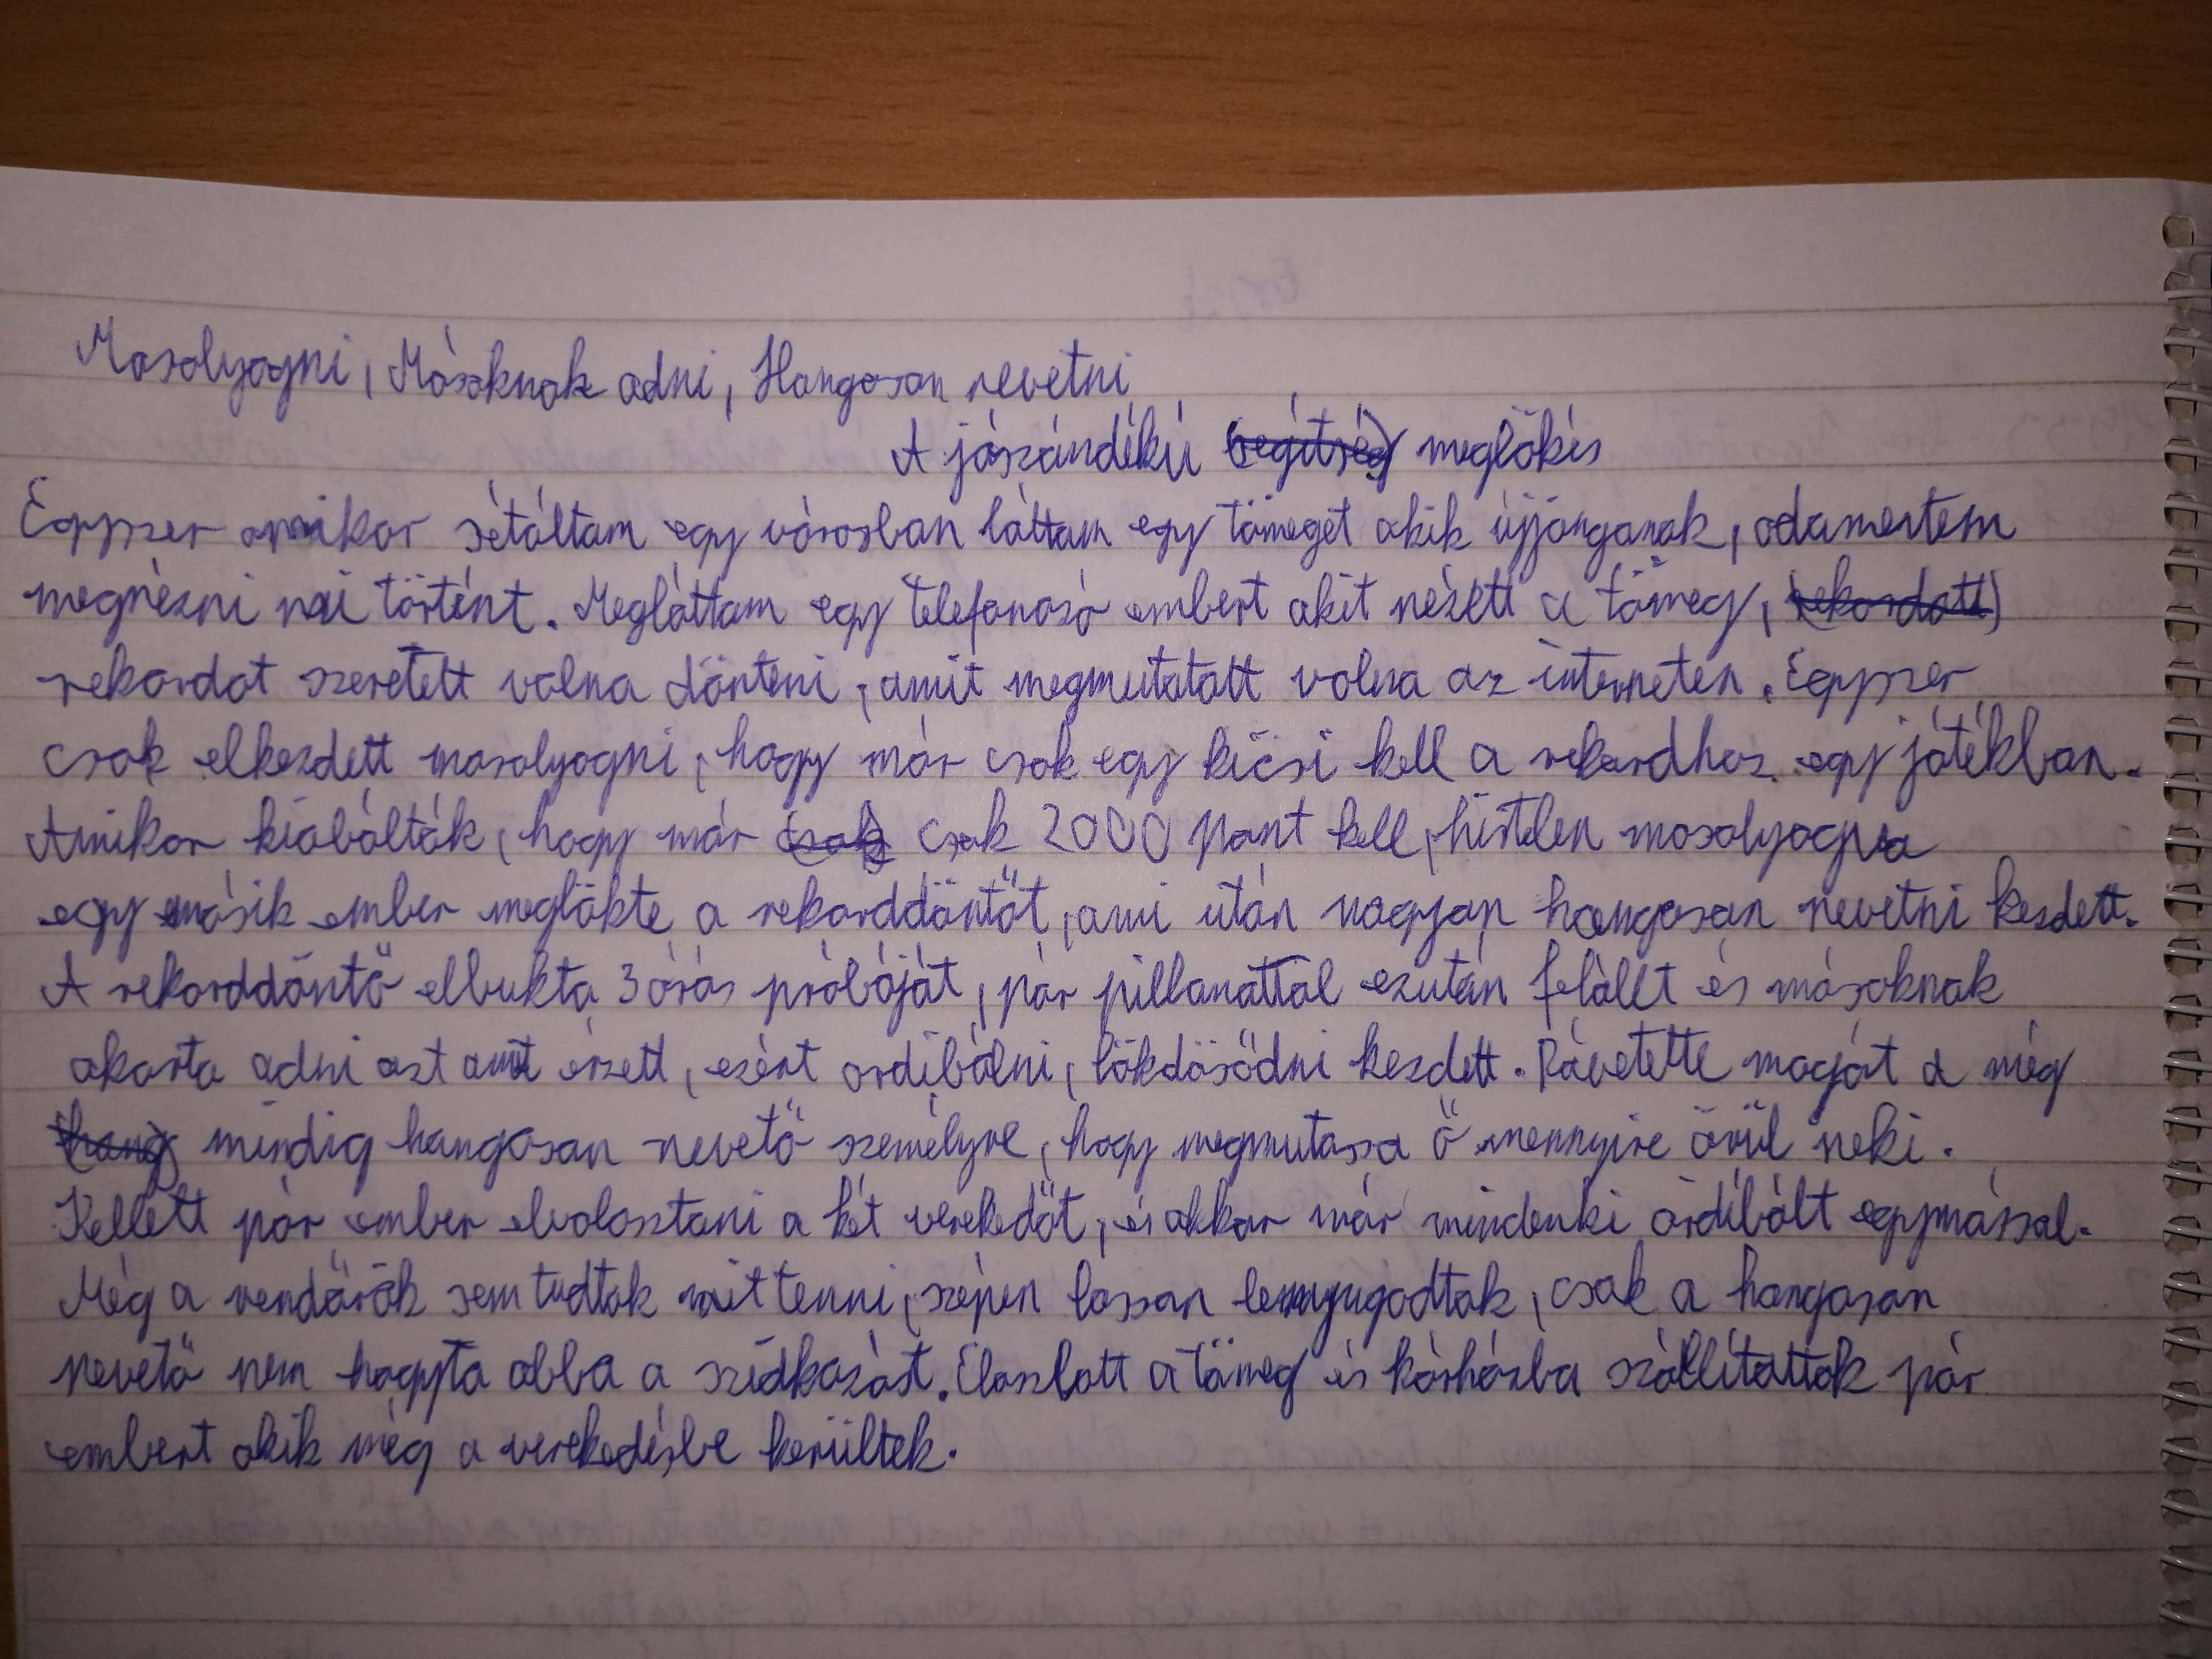 Mosolyogni, Másoknak adni, Hangosan nevetni
A jószándékú (segítség) meglökés
Egyszer amikor sétáltam egy városban láttam egy tömeget akik újjonganak, odamentem
megnézni mi történt. Megláttam egy telefonozó embert akit nézett a tömeg, (rekordott)
rekordot szeretett volna dönteni, amit megmutatott volna az interneten. Egyszer
csak elkezdett mosolyogni, hogy már csak egy kicsi kell a rekordhoz egy játékban.
Amikor kiabálták, hogy már (csak) csak 2000 pont kell, hirtelen mosolyogva
egy másik ember meglökte a rekorddöntőt, ami után nagyon hangosan nevetni kezdett.
A rekorddöntő elbukta 3 órás próbáját, pár pillanattal ezután felállt és másoknak
akarta adni azt amit érzett, ezért ordibálni, lökdösődni kezdett. Rávetette magát a még
(hang) mindig hangosan nevető személyre, hogy megmutassa ő mennyire örül neki.
Kellett pár ember elválasztani a két verekedőt, és akkor már mindenki ordibált egymással.
Még a rendőrök sem tudtak mit tenni, szépen lassan lenyugodtak, csak a hangosan
nevető nem hagyta abba a szidkozást. Eloszlott a tömeg és kórházba szállítottak pár
embert akik még a verekedésbe kerültek.